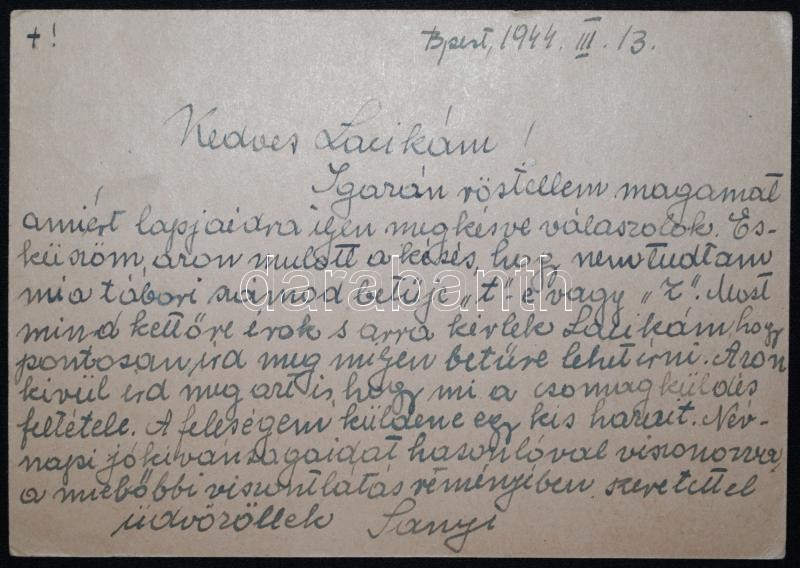 +!
Bpest, 1944. III. 13.
Kedves Lacikám!
Igazán röstellem magamat
amiért lapjaidra ilyen megkésve válaszolok. Es-
küszöm, azon mulott a késés, hogy nem tudtam
mi a tábori számod betüje "t"-e vagy "z". Most
mind kettőre irok s arra kérlek Lacikám, hogy
pontosan ird meg milyen betüre lehet irni. Azon
kivül ird meg azt is, hogy mi a csomagküldés
feltétele. A feleségem küldene egy kis hazait. Név-
napi jókivánságaidat hasonlóval viszonozva,
a mielőbbi viszontlátás reményében szeretettel
üdvözöllek Sanyi
darabanth